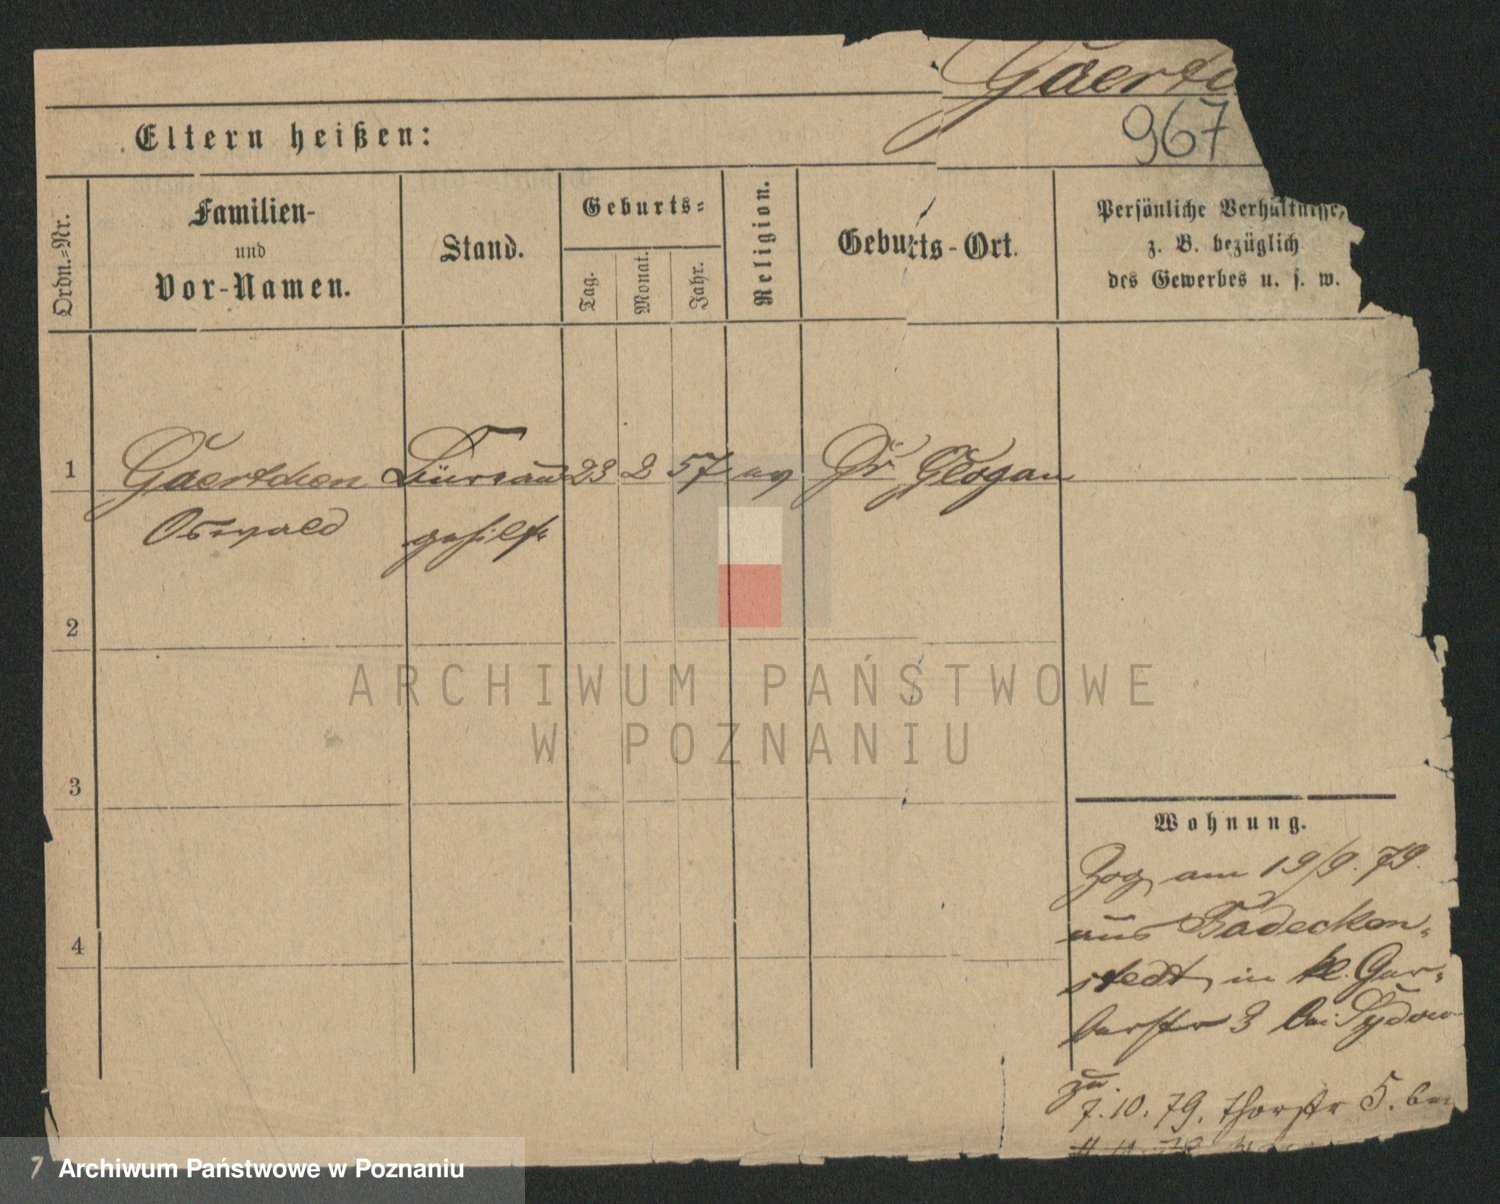 Gaertc
967
Eltern heißen:
Ordn.-Nr.
Familien-
und
Vor-Namen.
Stand.
Geburts-
Tag.
Monat.
Jahr.
Religion.
Geburts-Ort.
Persönliche Verhältnisse,
z. B. bezüglich
des Gewerbes u. s. w.
1
Gaertchen Büreau 23 2 57 ev Gr Glogau
Oswald gehilfe
2
3
4
Wohnung.
Zog am 19/9. 79.
aus Badecken-
stedt, in kl. Ger-
berstr 3 bei Sydow
zu.
7. 10. 79. Thorstr 5. bei
ARCHIWUM PAŃSTWOWE
W POZNANIU
7 Archiwum Państwowe w Poznaniu